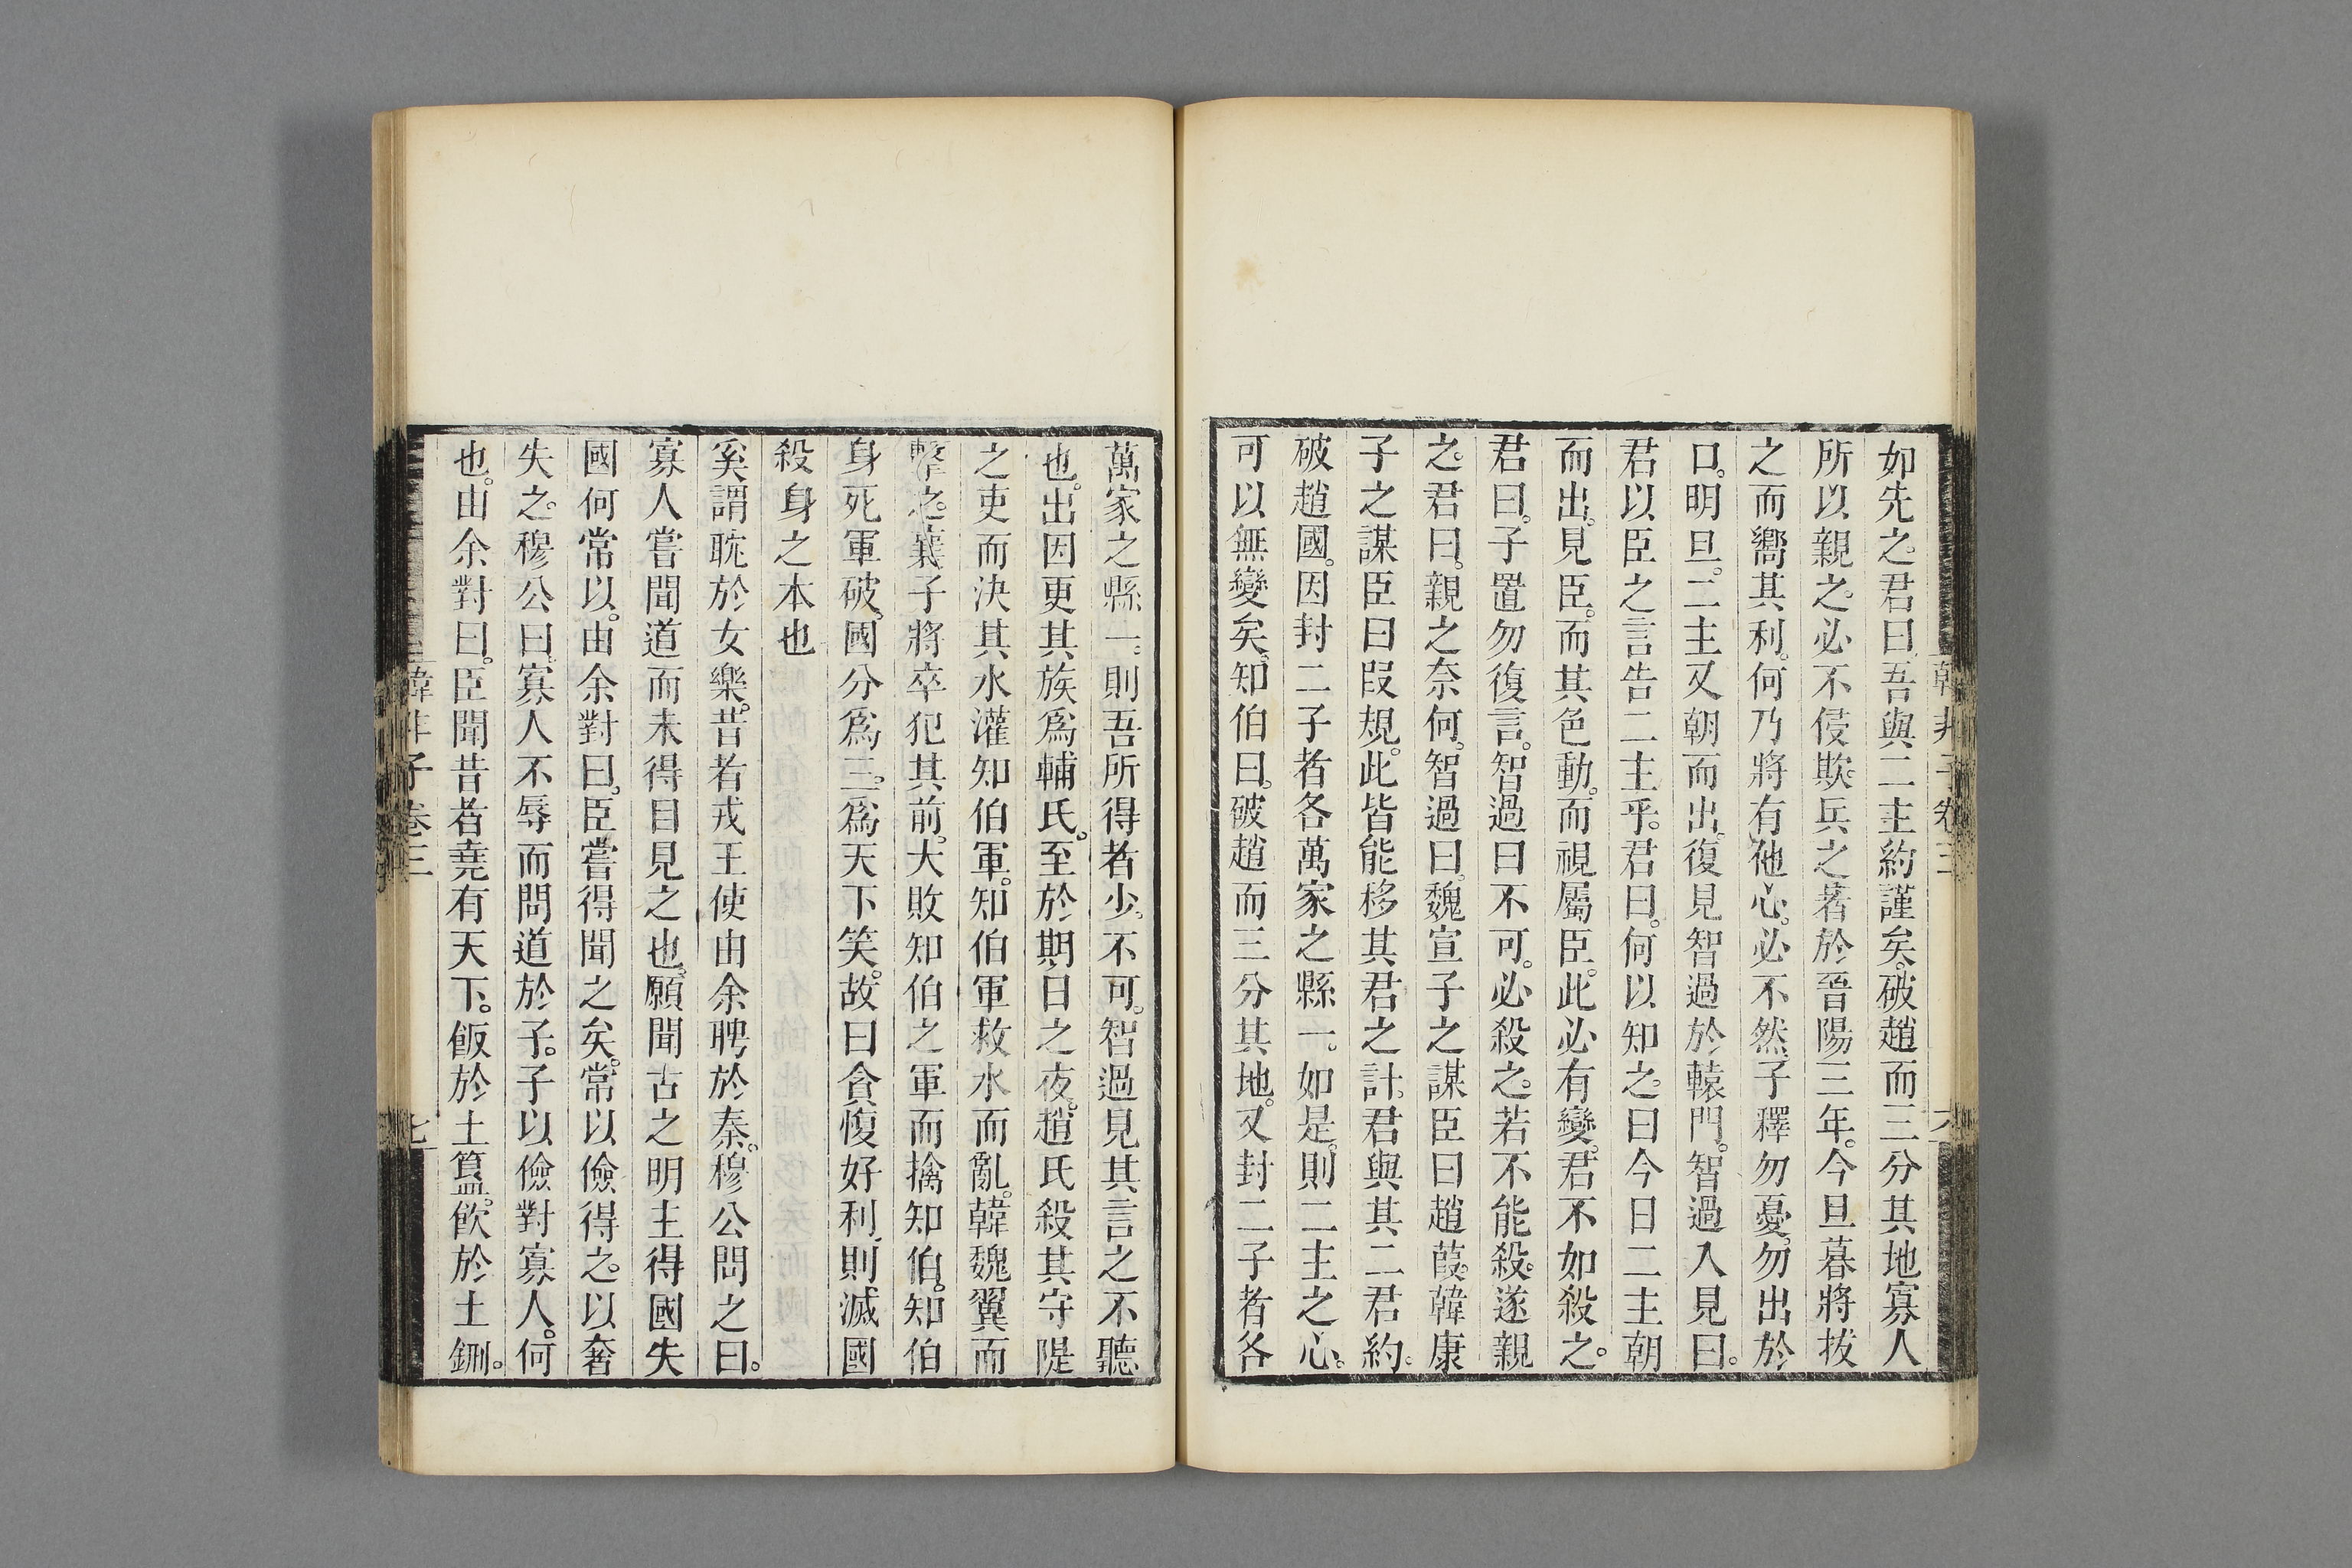 如先之。君曰。吾與二主約謹矣。破趙而三分其地。寡人
所以親之。必不侵欺。兵之著於晉陽三年。今旦暮將拔
之而嚮其利。何乃將有他心。必不然。子釋勿憂。勿出於
口。明旦。二主又朝而出。復見智過於轅門。智過入見曰。
君以臣之言告二主乎。君曰。何以知之。曰今日二主朝
而出。見臣。而其色動。而視屬臣。此必有變。君不如殺之。
君曰。子置勿復言。智過曰不可。必殺之。若不能殺。遂親
之。君曰。親之奈何。智過曰。魏宣子之謀臣曰趙葭。韓康
子之謀臣曰段規。此皆能移其君之計。君與其二君約。
破趙國。因封二子者各萬家之縣一。如是。則二主之心。
可以無變矣。知伯曰。破趙而三分其地。又封二子者各
韓非子卷三
六
萬家之縣一。則吾所得者少。不可。智過見其言之不聽
也。出因更其族爲輔氏。至於期日之夜。趙氏殺其守隄
之吏而決其水灌知伯軍。知伯軍救水而亂。韓魏翼而
擊之。襄子將卒犯其前。大敗知伯之軍而擒知伯。知伯
身死軍破。國分爲三。爲天下笑。故曰貪愎好利。則滅國
殺身之本也
奚謂耽於女樂。昔者戎王使由余聘於秦。穆公問之曰。
寡人嘗聞道而未得目見之也。願聞古之明主得國失
國何常以。由余對曰。臣嘗得聞之矣。常以儉得之。以奢
失之。穆公曰。寡人不辱而問道於子。子以儉對寡人。何
也。由余對曰。臣聞昔者堯有天下。飯於土簋。飲於土鉶。
韓非子卷三
七